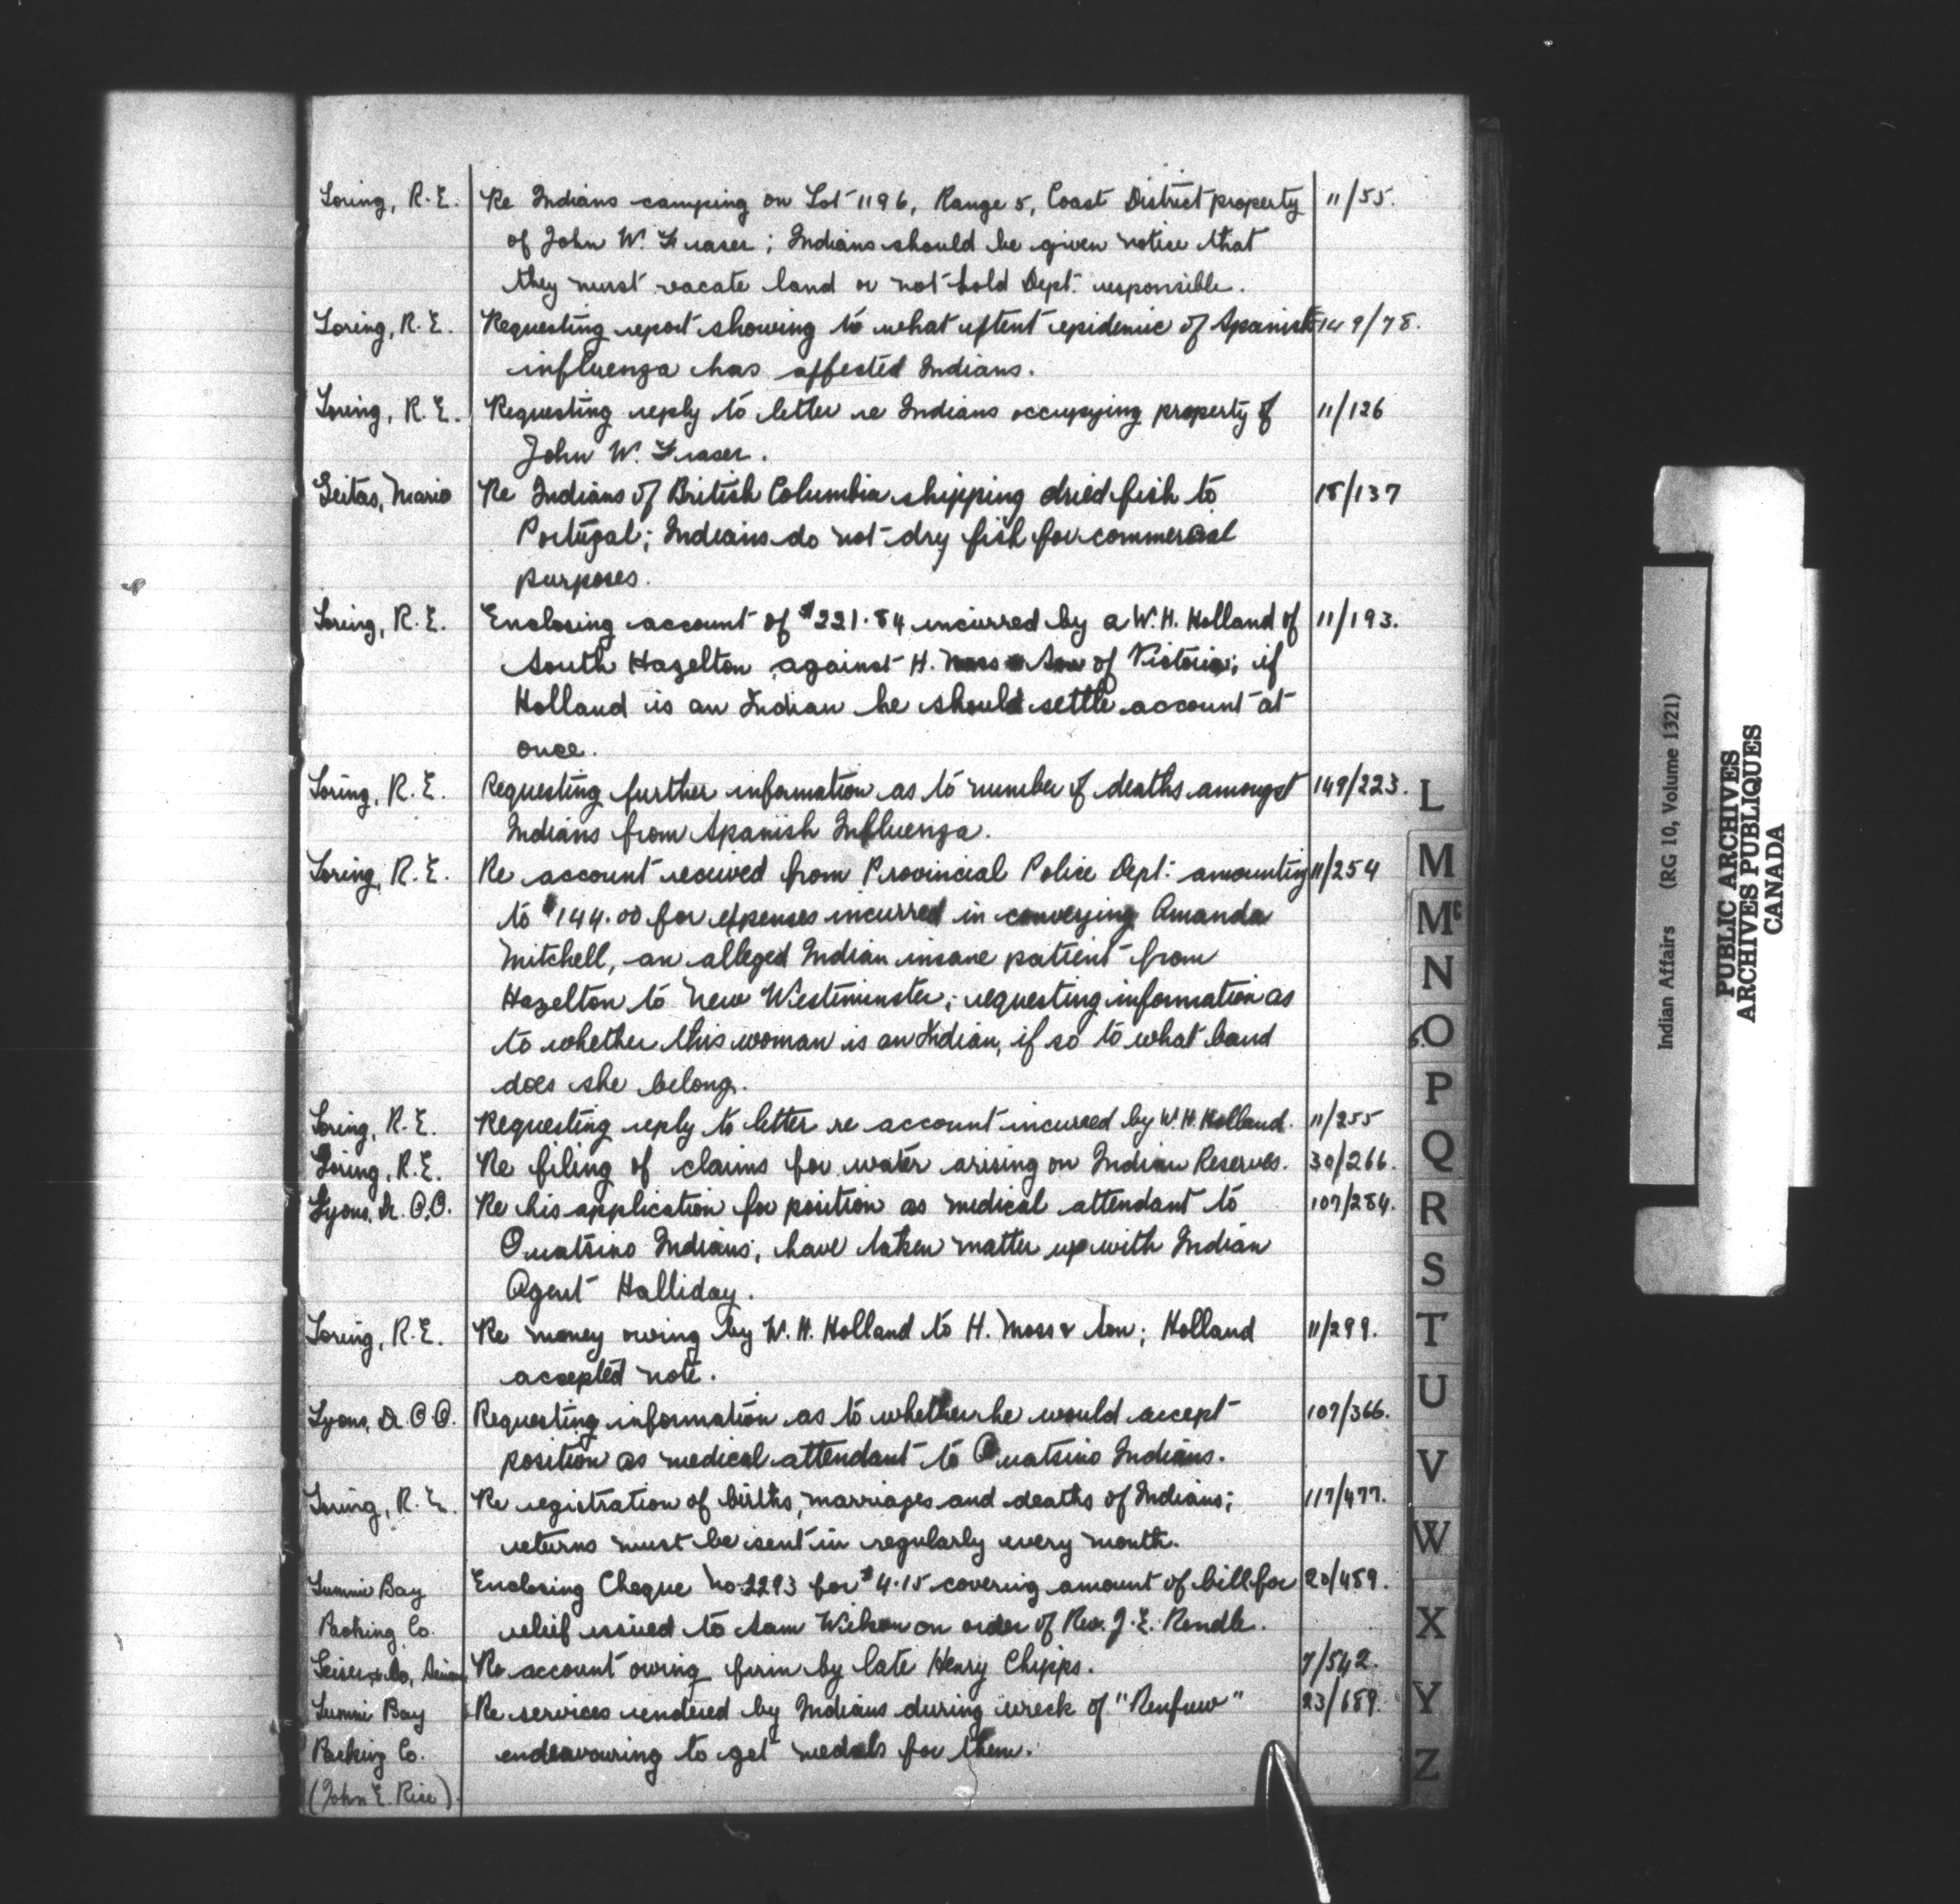 Loring, R.E. Re Indians camping on Lot 1196, Range 5, Coast District property 11/55.
of John W. Fraser; Indians should be given notice that
they must vacate land or not hold Dept. responsible.
Loring, R.E. Requesting report showing to what extent epidemic of Spanish 149/78.
influenza has affected Indians.
Loring, R.E. Requesting reply to letter re Indians occupying property of 11/126
John W. Fraser.
Leitas, Mario Re Indians of British Columbia shipping dried fish to 18/137
Portugal; Indians do not dry fish for commercial
purposes.
Loring, R.E. Enclosing account of $221.84 incurred by a W.H. Holland of 11/193.
South Hazelton against H. Moss & Son of Victoria; if
Holland is an Indian he should settle account at
once.
Loring, R.E. Requesting further information as to number of deaths amongst 149/223.
Indians from Spanish Influenza.
Loring, R.E. Re account received from Provincial Police Dept. amounting 11/254
to $144.00 for expenses incurred in conveying Amanda
Mitchell, an alleged Indian insane patient from
Hazelton to New Westminster; requesting information as
to whether this woman is an Indian, if so to what band
does she belong.
Loring, R.E. Requesting reply to letter re account incurred by W.H. Holland. 11/255
Loring, R.E. Re filing of claims for water arising on Indian Reserves. 30/266.
Lyons, Dr. O.O. Re his application for position as medical attendant to 107/284.
Quatsino Indians; have taken matter up with Indian
Agent Halliday.
Loring, R.E. Re money owing by W.H. Holland to H. Moss & Son; Holland 11/299.
accepted note.
Lyons, Dr. O.O. Requesting information as to whether he would accept 107/366.
position as medical attendant to Quatsino Indians.
Loring, R.E. Re registration of births, marriages and deaths of Indians; 117/477.
returns must be sent in regularly every month.
Lummi Bay Enclosing Cheque No 2293 for $4.15 covering amount of bill for 20/489.
Packing Co. relief issued to Sam Wilson on order of Rev. J.E. Rendle.
Leiser & Co, Simon Re account owing firm by late Henry Chipps. 7/542.
Lummi Bay Re services rendered by Indians during wreck of "Renfrew" 23/689.
Packing Co. endeavouring to get medals for them.
(John E. Rise).
L
M
Mc
N
O
P
Q
R
S
T
U
V
W
X
Y
Z
Indian Affairs (RG 10, Volume 1321)
PUBLIC ARCHIVES
ARCHIVES PUBLIQUES
CANADA